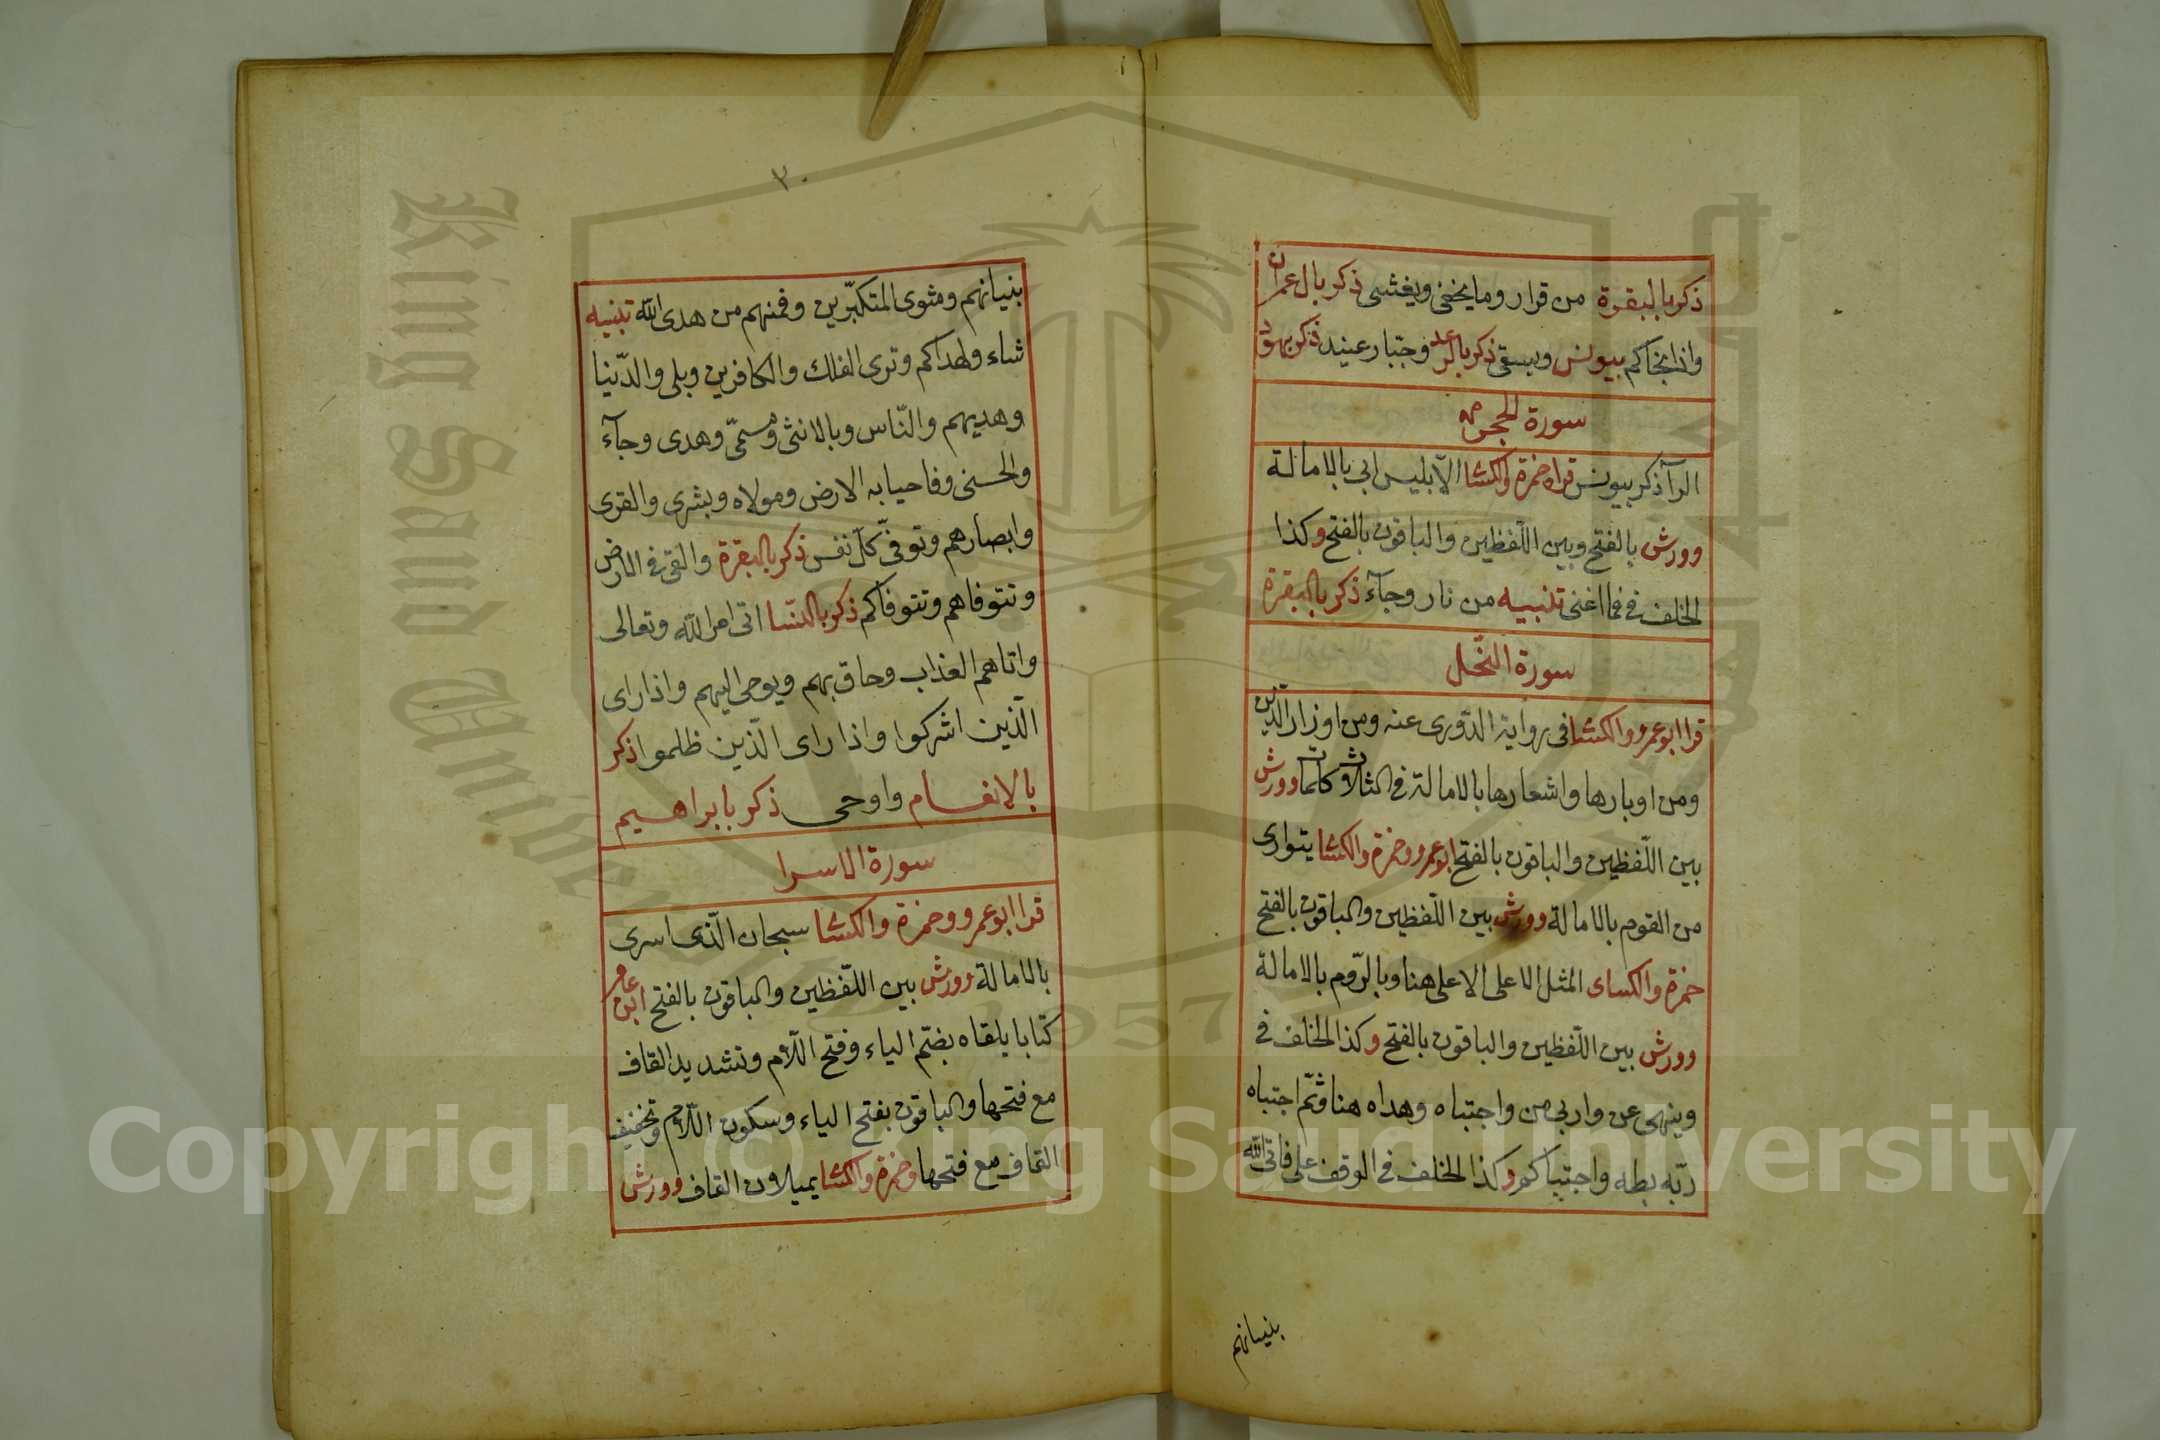 ذكر بالبقرة من قرار وما يخفى ويغشى ذكر بال عمران
واذا نجاكم بيونس ويسقى ذكر بالرعد وجبار عنيد ذكر بهود
سورة الحجر
الرآ ذكر بيونس قراه حمزة والكسا الا ابليس ابى بالامالة
وورش بالفتح وبين اللفظين والباقون بالفتح وكذا
الخلف في فما اغنى تنبيه من نار وجآء ذكر بالبقرة
سورة النخل
قرا ابو عمرو والكسا فى رواية الدورى عنه ومن اوزار الذين
ومن اوبارها واشعارها بالامالة في الثلاث كلمات وورش
بين اللفظين والباقون بالفتح ابو عمرو وحمزة والكسا يتوارى
من القوم بالامالة وورش بين اللفظين والباقون بالفتح
حمزة والكساى المثل الاعلى الاعلى هنا وبالروم بالامالة
وورش بين اللفظين والباقون بالفتح وكذا الخلف في
وينهى عن واربى من واجتباه وهداه هنا وثم اجتباه
ربه بطه واجتباكم وكذا الخلف في الوقف على فاتى الله
بنيانهم
٣٠
بنيانهم ومثوى المتكبرين وفمنهم من هدى الله تنبيه
شاء ولهداكم وترى الفلك والكافرين وبلى والدنيا
وهديهم والناس وبالانثى ومسمى وهدى وجآء
والحسنى وفاحيا به الارض ومولاه وبشرى والقرى
وابصارهم وتوفى كل نفس ذكر بالبقرة والقى في الارض
وتتوفاهم وتتوفاكم ذكر بالنسا اتى امر الله وتعالى
واتاهم العذاب وحاق بهم ويوحى اليهم واذا راى
الذين اشركوا واذا راى الذين ظلموا ذكر
بالانعام واوحى ذكر بابراهيم
سورة الاسرا
قرا ابو عمرو وحمزة والكسا سبحان الذى اسرى
بالامالة وورش بين اللفظين والباقون بالفتح ابن عامر
كتابا يلقاه بضم الياء وفتح اللام وتشديد القاف
مع فتحها والباقون بفتح الياء وسكون اللام وتخفيف
القاف مع فتحها وحمزة والكسا يميلان القاف وورش
King Saud University
1957
Copyright © King Saud University